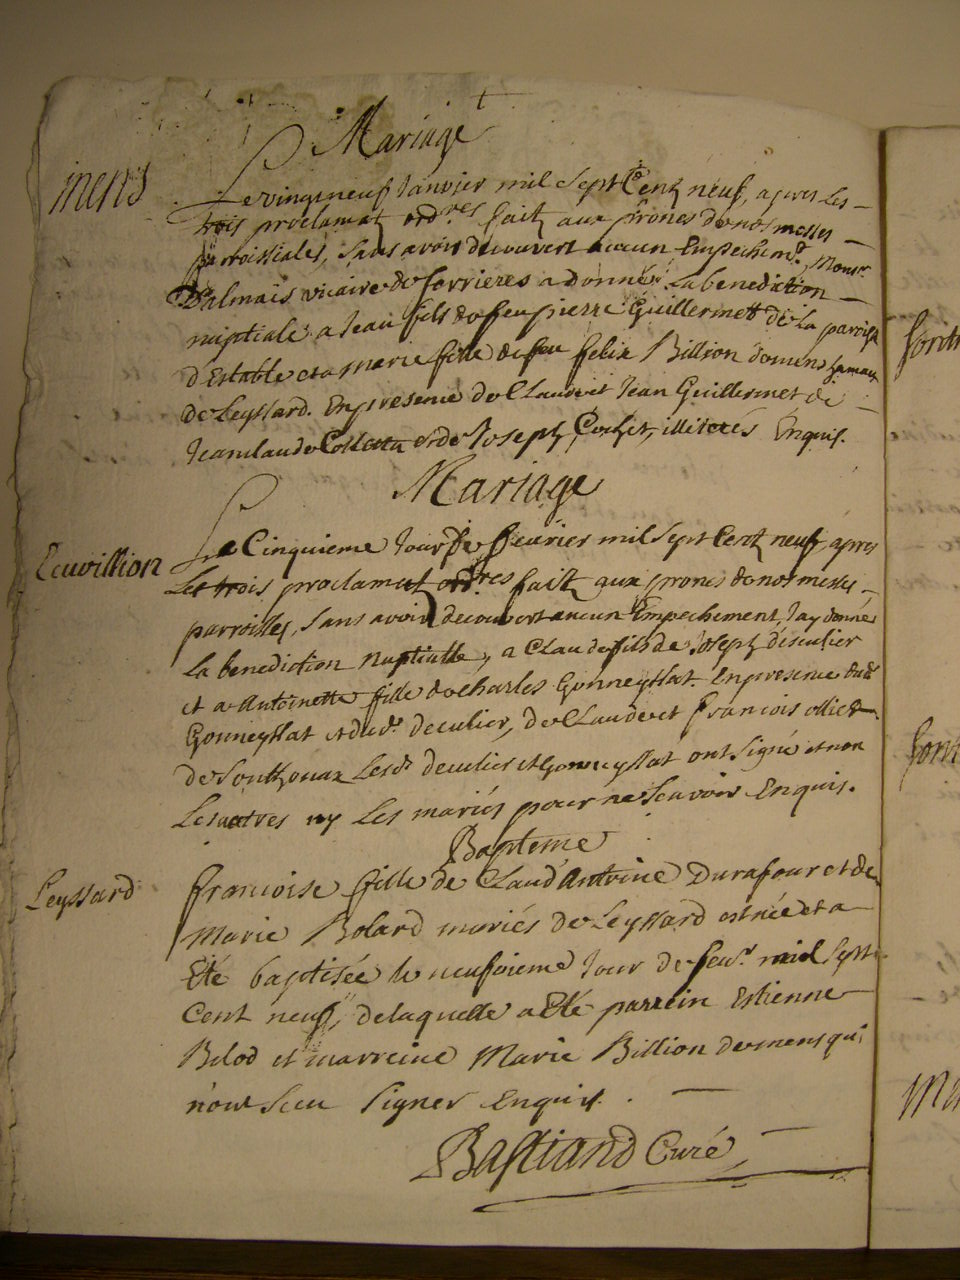 Mariage
mens
Le vingt neuf Janvier mil Sept Cent neuf, apres les
trois proclamat ord.res fait aux prônes de nos messes
parroissiales, Sans avoir decouvert aucun Empechem.t Monsr.
Dalmais vicaire de Serrieres a donné La benediction
nuptiale a Jean fils de feu pierre Guillermet de La paroisse
d'Estable et a Marie fille de feu felix Billion de mens hameau
de Leyssard. En presence de Claude et Jean Guillermet de
Jean Claude et de Joseph Cochet, illiterés Enquis.
Mariage
Le Cinquieme Jour de feuvrier mil Sept Cent neuf, apres
Les trois proclamat ord.res fait aux prones de nos messes
parroisses, Sans avoir decouvert aucun Empechement, Jay donné
La benediction nuptialle, a Claude fils de Joseph deculier
et a Antoinette fille de Charles Gonneyllat. En presence dud
Gonneyllat et dud. deculier, de Claude et francois ollier
de Les d. deculier et Gonneyllat ont Signé et non
Les autres ny Les mariés pour ne Scavoir Enquis.
Bapteme
Leyssard
francoise fille de Claud Antoine Durafour et de
Marie Bolard mariés de Leyssard est née et a
Eté baptisée le neufvieme Jour de feu.r mil Sept
Cent neuf, de laquelle a Eté parrein Estienne
Bolod et marreine Marie Billion de mens qui
n'ont Sceu Signer Enquis.
Bastiand Curé